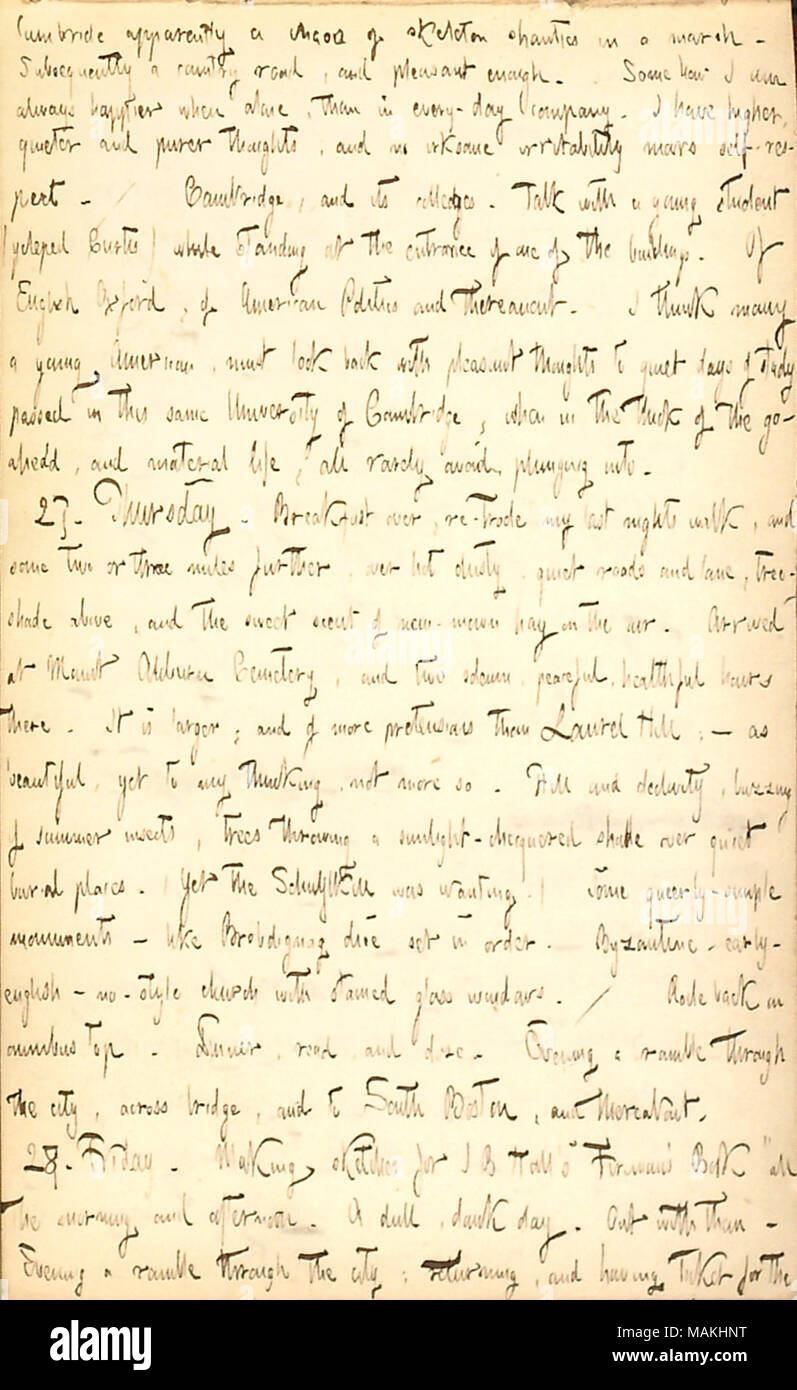 Cambride apparently a chaos of skeleton shanties in a marsh -
Subsequently a country road, and pleasant enough. Some how I am
always happier when alone, than in every-day company. I have higher,
quieter and purer thoughts, and no irksome irritability mars self-res-
pect - / Cambridge, and its colledges. Talk with a young student
(ycleped Curtis) while standing at the entrance of one of the buildings. Of
English Oxford, of American Politics and thereanent. I think many
a young American, must look back with pleasant thoughts to quiet days of study
passed in this same University of Cambridge, when in the thick of the go-
ahedd, and material life, all rarely avoid plunging into.
27. Thursday. Breakfast over, re-trode my last nights walk, and
some two or three miles further, over hot dusty, quiet roads and lane, tree-
shade above, and the sweet scent of new-mown hay on the air. Arrived
at Mount Auburn Cemetery, and two solemn, peaceful, healthful hours
there. It is larger, and of more pretensions than Laurel Hill; - as
beautiful, yet to my thinking not more so. Hill and declivity, buzzing
of summer insects, trees throwing a sunlight-chequered shade over quiet
burial places. (Yet the Schuylkill was wanting.) Some queerly-simple
monuments - like Brobdignag dice set in order. Byzantine - early-
english - no-style church with stained glass windows. / Rode back on
omnibus top. Dinner, read and doze. Evening a ramble through
the city, across bridge, and to South Boston, and thereabout.
28. Friday. Making sketches for J B Hall's "Fireman's Book" all
the morning and afternoon. A dull, dank day. Out with them -
Evening a ramble through the city; returning, and having ticket for the
alamy
Image ID: MAKHNT
www.alamy.com